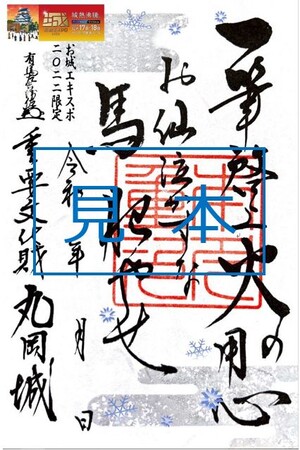 一筆啓上火の用心
お仙泣かすな
馬肥やせ
令和 年 月 日
重要文化財 丸岡城
お城エキスポ
二〇二二限定
見本